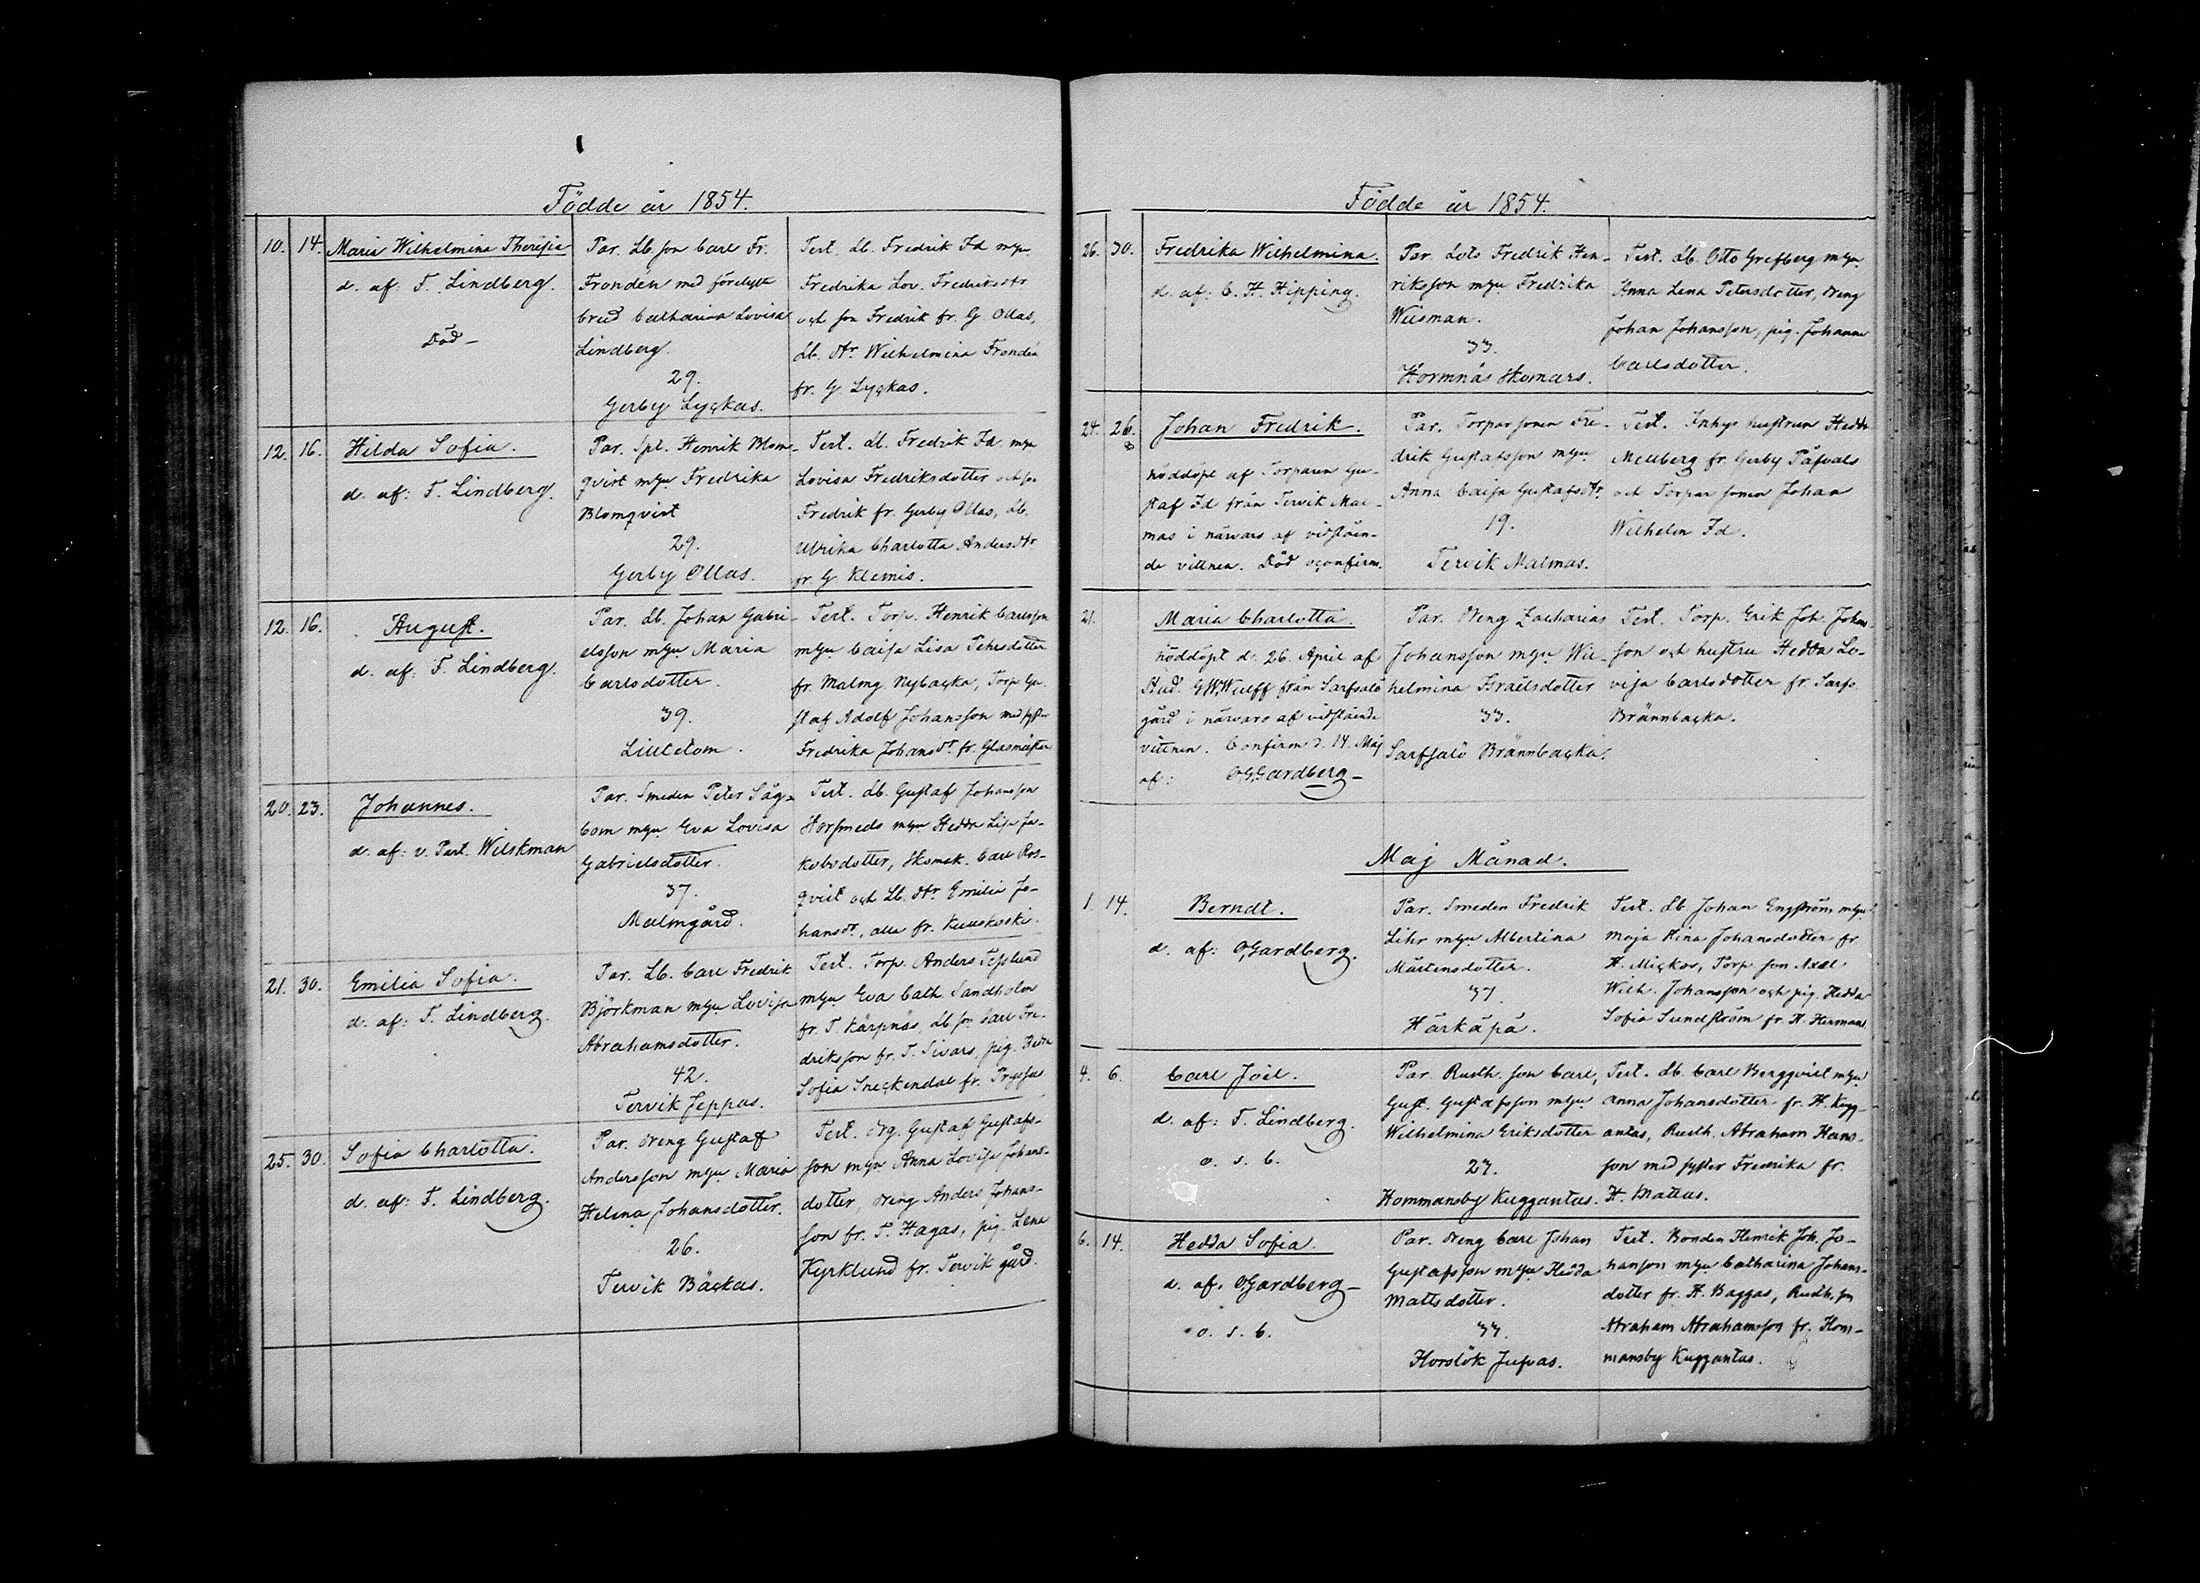 Födde år 1854.
10. 14. Maria Wilhelmina Theresia
d. af: F. Lindberg.
Död –
Par. Lb. son Carl Fr.
Fronden med förelyft
brud Catharina Lovisa
Lindberg.
29.
Gerby Lyckas.
Test. Lb. Fredrik Id mgn
Fredrika Lov. Fredriksdtr
och son Fredrik fr. G. Ollas,
Lb. dtr Wilhelmina Frondén
fr. G Lyckas.
12. 16. Hilda Sofia.
d. af: F. Lindberg.
Par. Spl. Henrik Blom-
qvist mgn Fredrika
Blomqvist
29.
Gerby Ollas.
Test. Lb. Fredrik Id mgn
Lovisa Fredriksdotter och son
Fredrik fr. Gerby Ollas, Lb.
Ulrika Charlotta Andersdtr
fr. G Klemis.
12. 16. August.
d. af: F. Lindberg.
Par. Lb. Johan Gabri-
elsson mgn Maria
Carlsdotter.
39.
Liteldom.
Test. Torp. Henrik Carlsson
mgn Caisa Lisa Pehrsdotter
fr. Malmg Nybacka, Torp Gu-
staf Adolf Johansson med syster
Fredrika Johansdt. fr. Glasmäster
20. 23. Johannes.
d. af: v. Past. Wilskman
Par. Smeden Peter Såg-
bom mgn Eva Lovisa
Gabrielsdotter.
37.
Malmgård.
Test. Lb. Gustaf Johansson
Horsmeds mgn Hedda Lisa Ja-
kobsdotter, Skomak. Carl Ros-
qvist och Lb. dtr Emilia Jo-
hansdt., alla fr. Kuuskoski.
21. 30. Emilia Sofia.
d. af: F. Lindberg.
Par. Lb. Carl Fredrik
Björkman mgn Lovisa
Abrahamsdotter.
42.
Tervik Jeppas.
Test. Torp. Anders Teslund
mgn Eva Cath. Sandholm
fr. T Kärpnäs, Lb son Carl Fre-
driksson fr. T. Sivars, pig. Hedda
Sofia Sneckendal fr.
25. 30. Sofia Charlotta.
d. af: F. Lindberg.
Par. Dreng Gustaf
Andersson mgn Maria
Helena Johansdotter.
26.
Tervik Bäckas.
Test. Drg. Gustaf Gustafs-
son mgn Anna Lovisa Johans-
dotter, dreng Anders Johans-
son fr. T. Hagas, pig. Lena
Kyrklund fr. Tervik gård.
Födde år 1854.
26. 30. Fredrika Wilhelmina.
d. af: C. H. Hipping.
Par. Lots Fredrik Hen-
riksson mgn Fredrika
Wiisman.
33.
Hormnäs Skomars.
Test. Lb. Otto Grefberg mgn
Anna Lena Petersdotter, dreng
Johan Johansson, pig. Johanna
Carlsdotter.
24. 26. Johan Fredrik.
nöddöpt af Torparen Gu-
staf Id från Tervik Mal-
mas i närvaro af vidståen-
de vittnen. Död oconfirm.
Par. Torparsonen Fre-
drik Gustafsson mgn
Anna Caisa Gustafsdtr.
19.
Tervik Malmas.
Test. Inhys hustrun Hedda
Mellberg fr. Gerby Påfvals
och Torpar sonen Johan
Wilhelm Id.
21. Maria Charlotta.
nöddöpt d. 26. April af
Stud. G W. Wulff från Sarfsalö
gård i närvaro af vidstående
vittnen. Confirm d. 14. Maj
af: O. Gardberg –
Par. Dreng Zacharias
Johansson mgn Wil-
helmina Israelsdotter
33.
Sarfsalö Brännbacka.
Test. Torp. Erik Joh. Johans-
son och hustru Hedda Lo-
visa Carlsdotter fr. Sarfs.
Brännbacka.
Maj Månad.
1 14. Berndt.
d. af: O. Gardberg.
Par. Smeden Fredrik
Lihr mgn Albertina
Mårtensdotter.
37.
Härkäpä.
Test. Lb Johan Engström mgn
Maja Stina Johansdotter fr
H. Mickos, Torp son Axel
Wilh. Johansson och pig. Hedda
Sofia Sundström fr H. Hermans
4. 6. Carl Joel.
d. af: F. Lindberg.
o. s. b.
Par. Rusth. son Carl
Gust. Gustafsson mgn
Wilhelmina Eriksdotter
27.
Hommansby Kuggantas.
Test. Lb Carl Bergqvist mgn
Anna Johansdotter fr. H. Kugg-
antas, Rusth. Abraham Hans-
son med syster Fredrika fr.
H. Mattas.
6. 14. Hedda Sofia.
d. af: O. Gardberg –
o. s. b.
Par. Dreng Carl Johan
Gustafsson mgn Hedda
Mattsdotter.
33.
Horslök Jufvas.
Test. Bonden Henrik Joh. Jo-
hanson mgn Catharina Johans-
dotter fr. H. Baggas, Rusth. son
Abraham Abrahamsson fr. Hom-
mansby Kuggantas.